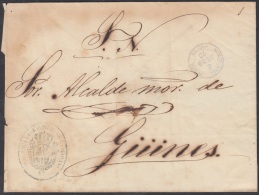 S. N.
Sor. Alcalde mor. de
Güines.